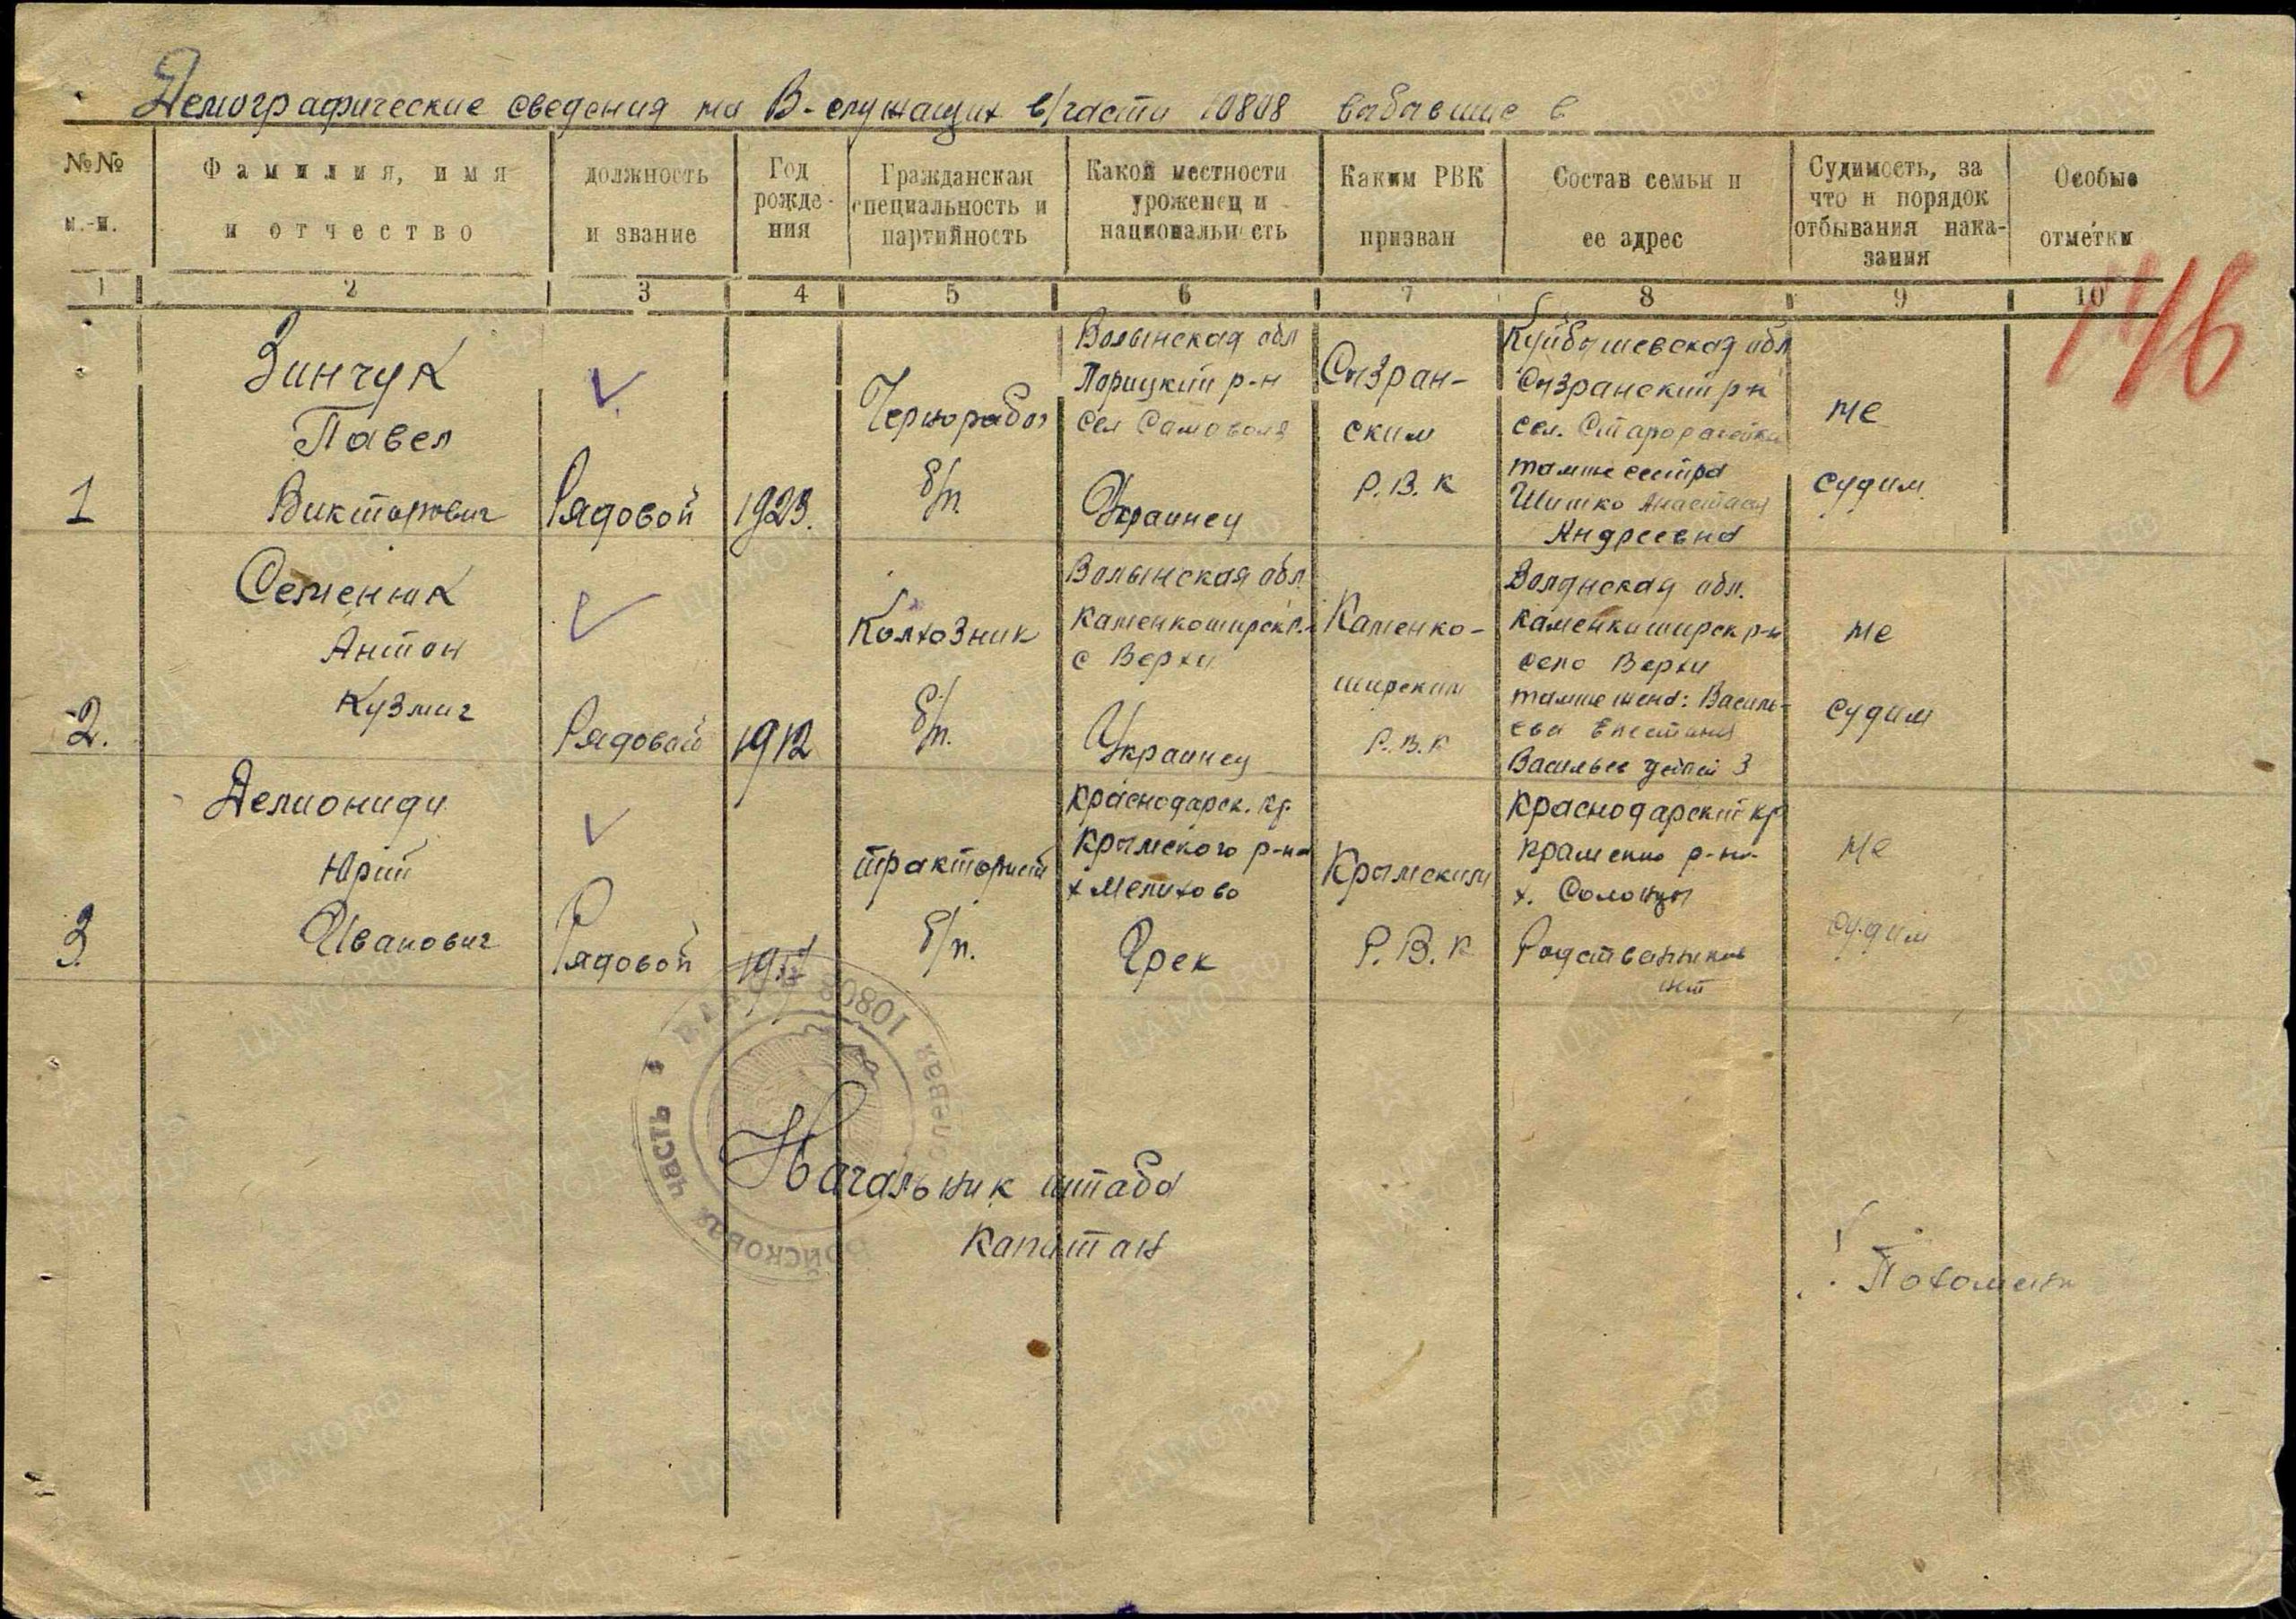 Демографические сведения на В-служащих в/части 10808 выбавшие в
№№ п.-п.
Фамилия, имя и отчество
должность и звание
Год рожде- ния
Гражданская специальность и партийность
Какой местности уроженец и национальность
Каким РВК призван
Состав семьи и ее адрес
Судимость, за что и порядок отбывания нака- зания
Особые отметки
1 2 3 4 5 6 7 8 9 10
146
1
Зинчук
Павел
Викторович
Рядовой
1923.
Чернорабоч
б/п.
Волынская обл
Порицкий р-н
сел Самоволя
Украинец
Сызран-
ским
Р.В.К
Куйбышевская обл
Сызранский р-н
сел.
тамже сестра
Шитко Анастасия
Андреевна
не
судим
2.
Семенюк
Антон
Кузмич
Рядовой
1912
Колхозник
б/п.
Волынская обл
с Верхи
Украинец
Каменко-
ширским
Р.В.К
Волынская обл.
каменкиширск р-н
село Верхи
тамже жена: Василь-
ева
детей 3
не
судим
3.
Делиониди
Юрий
Иванович
Рядовой
тракторист
б/п.
Краснодарск. кр.
Крымского р-на
х Мелихово
Грек
Крымским
Р.В.К
Краснодарский кр
р-на
х. Солонцы
Родственников
нет
не
судим
10808
Войсковая часть
Полевая
Начальник штаба
Капитан